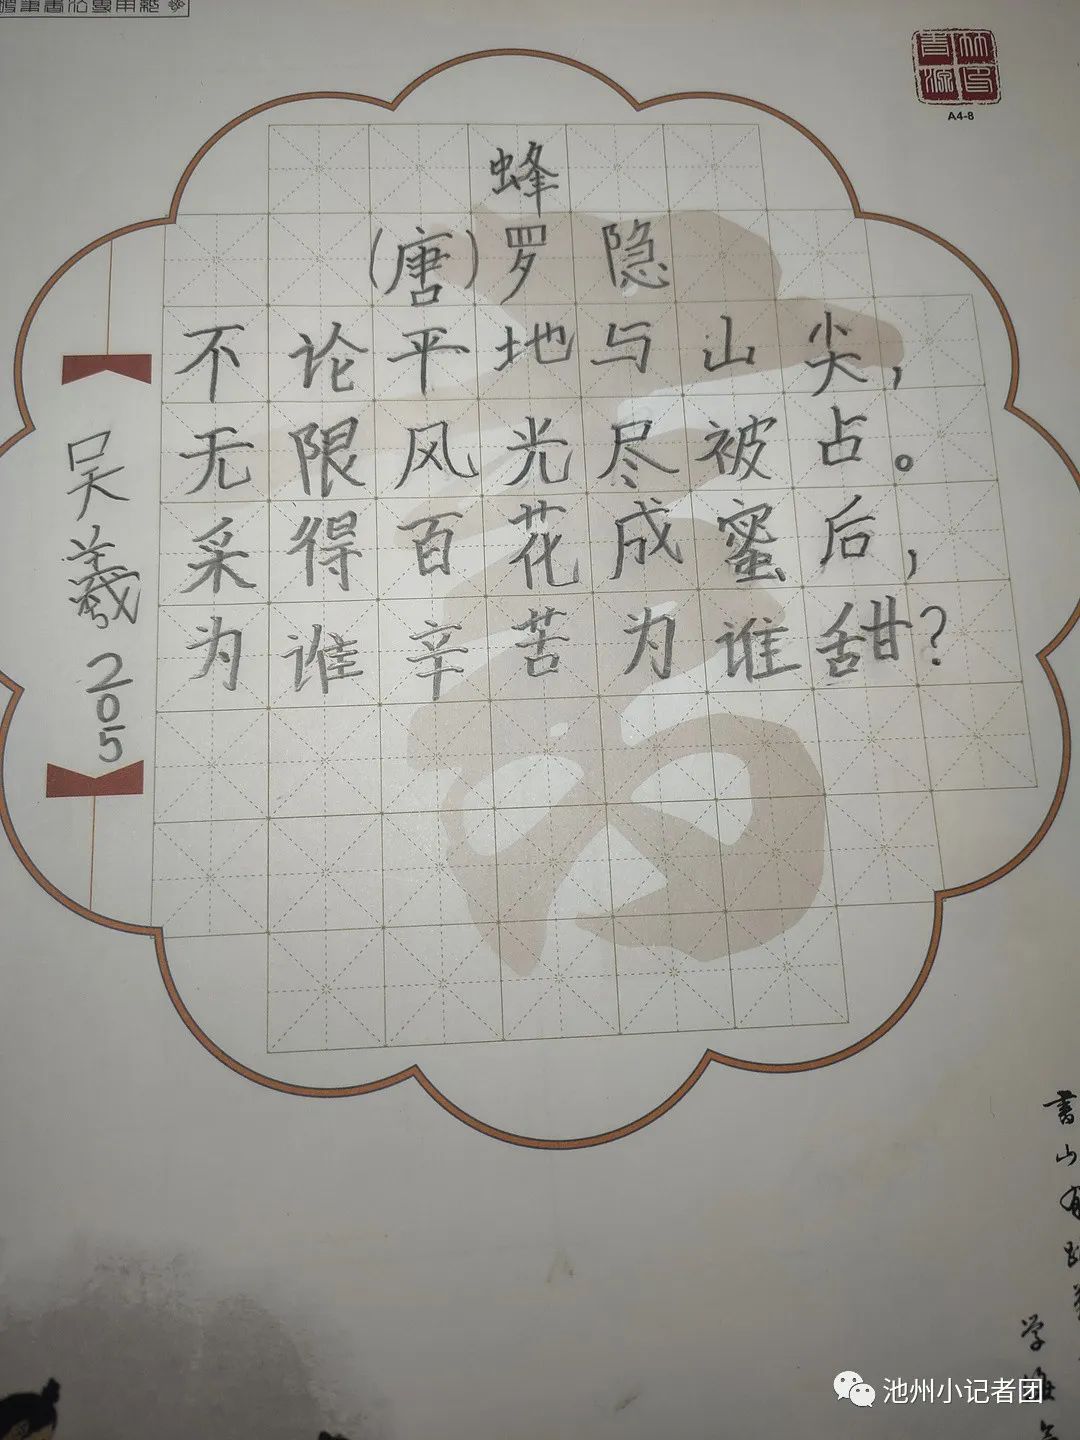 硬笔书法专用纸
A4-8
蜂
(唐)罗隐
不论平地与山尖，
无限风光尽被占。
采得百花成蜜后，
为谁辛苦为谁甜？
吴羲 205
書山有路
学海
池州小记者团